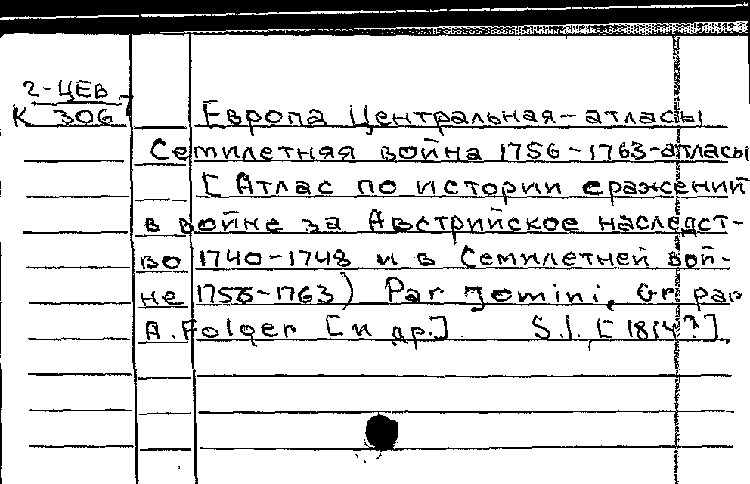 2-ЦЕВ
К 306
Европа Центральная-атласы
Семилетняя война 1756-1763-атласы
[Атлас по истории сражений
в войне за Австрийское наследст-
во 1740-1748 и в Семилетней вой-
не 1756-1763) Par Jomini, Gr par
A. Folger [и др.] S.l. [1814?].